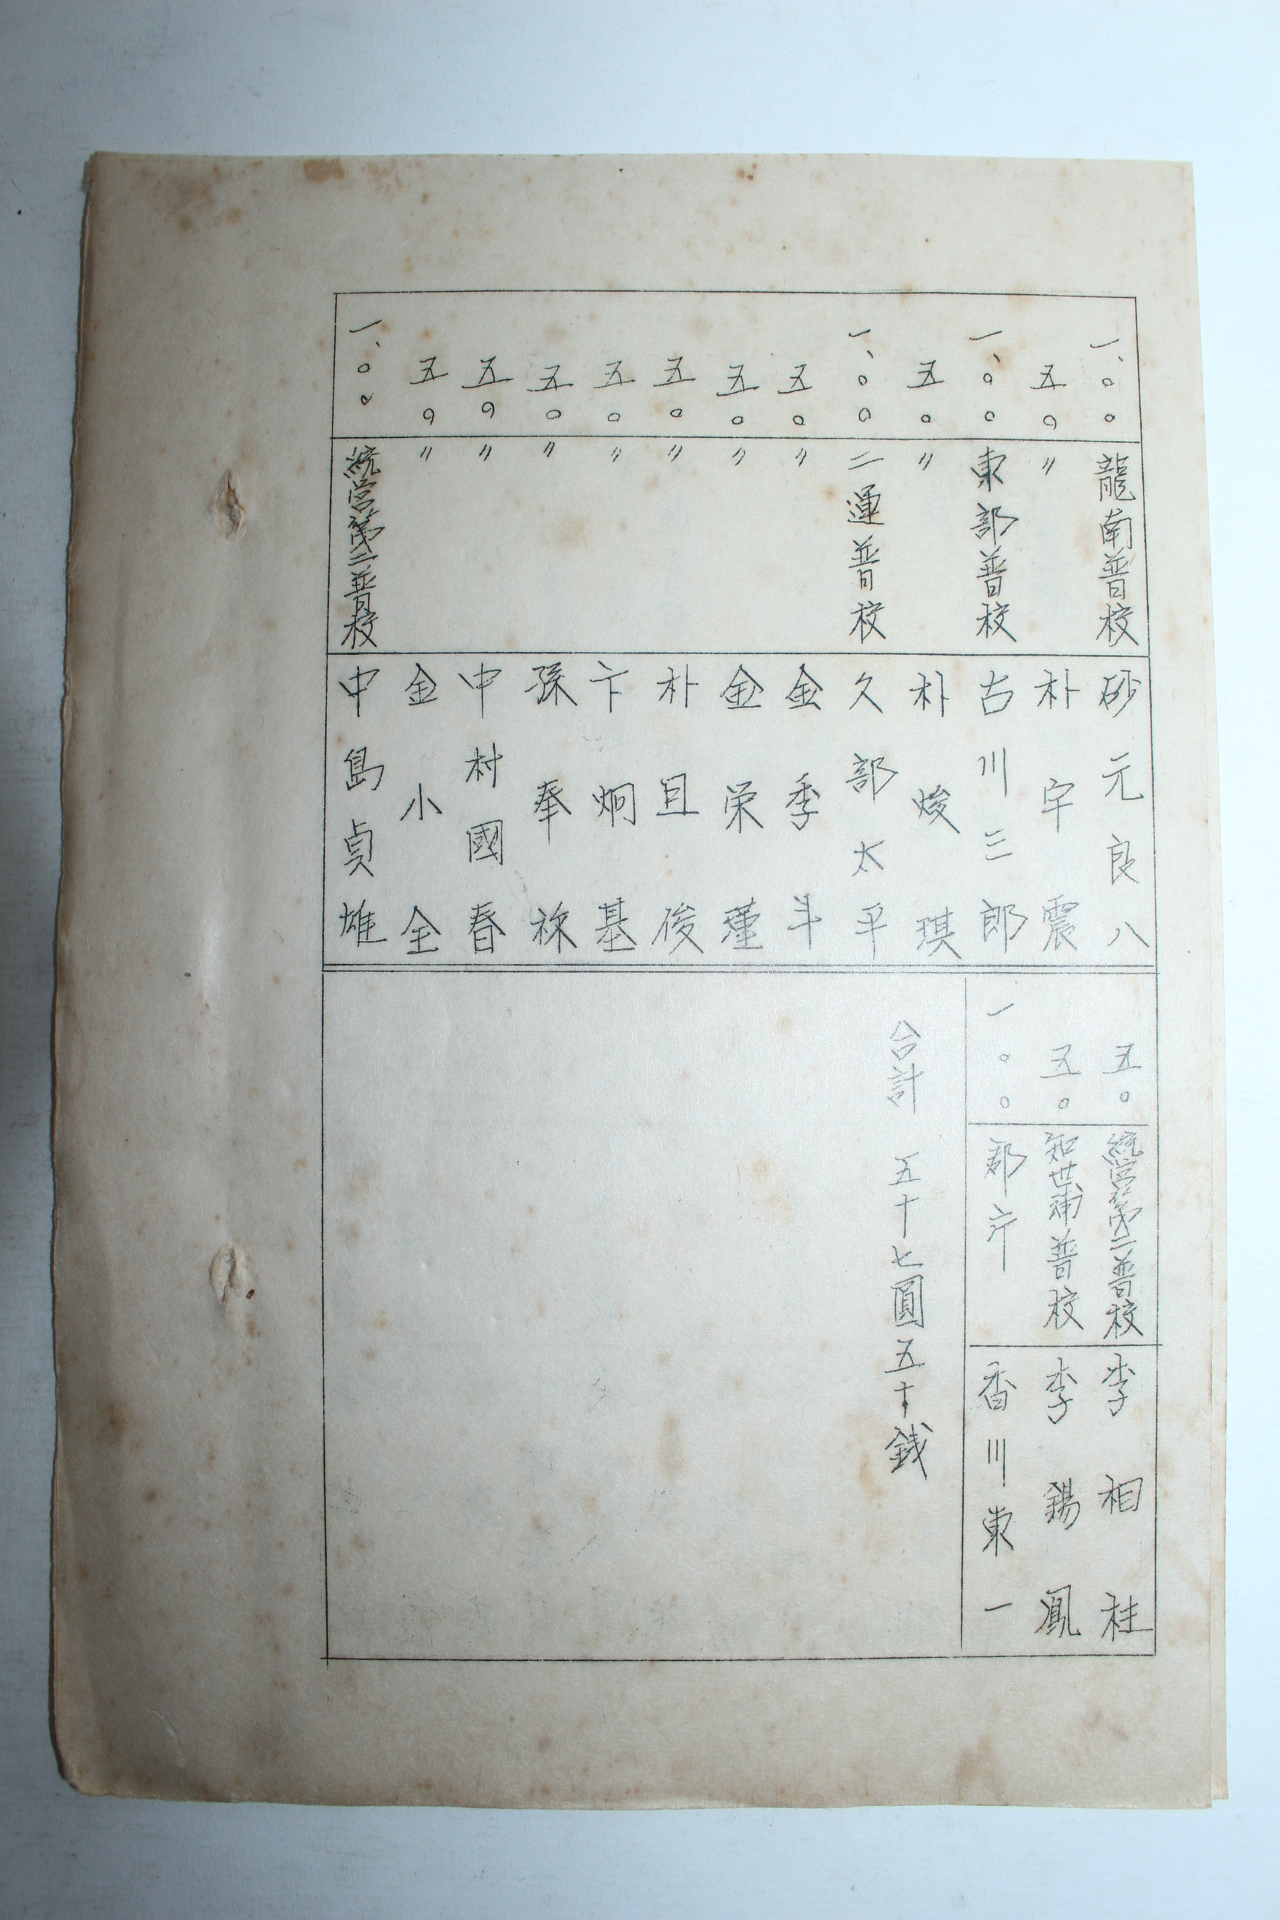 一、〇〇 龍南普校 砂元良八
五〇 〃 朴宇震
一、〇〇 東部普校 古川三郎
五〇 〃 朴焌琪
一、〇〇 二運普校 久部太平
五〇 〃 金季斗
五〇 〃 金栄瑾
五〇 〃 朴且俊
五〇 〃 卞炯基
五〇 〃 孫奉祩
五〇 〃 中村國春
五〇 〃 金小全
一、〇〇 統営第二普校 中島貞雄
五〇 統営第二普校 李相桂
五〇 知世浦普校 李錫鳳
一〇〇 郡庁 香川東一
合計 五十七圓五十銭